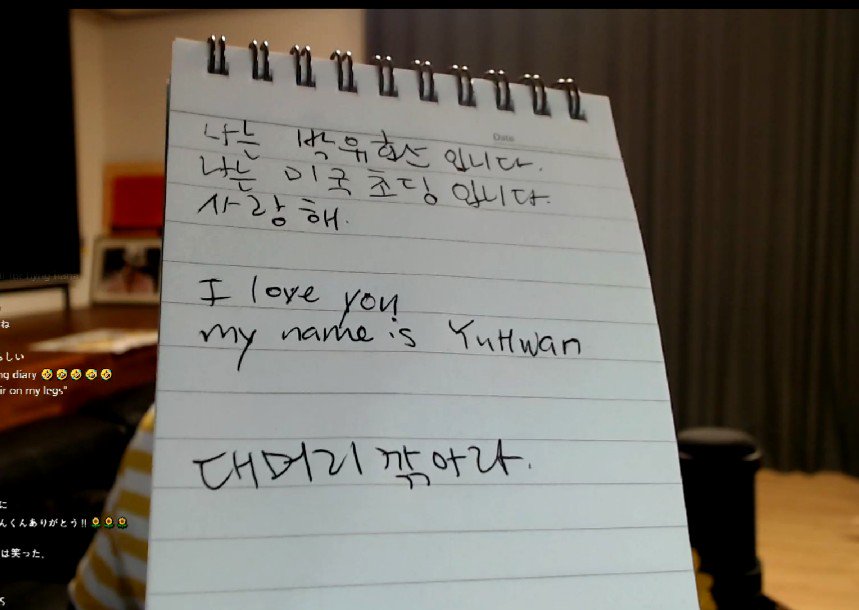 Date
나는 박유환 입니다.
나는 미국 초딩 입니다.
사랑해.
I love you
my name is YuHwan
대머리 깎아라.
ね
らしい
ng diary 🤣🤣🤣🤣🤣
ir on my legs"
に
んくんありがとう!!🌻🌻🌻
は笑った、